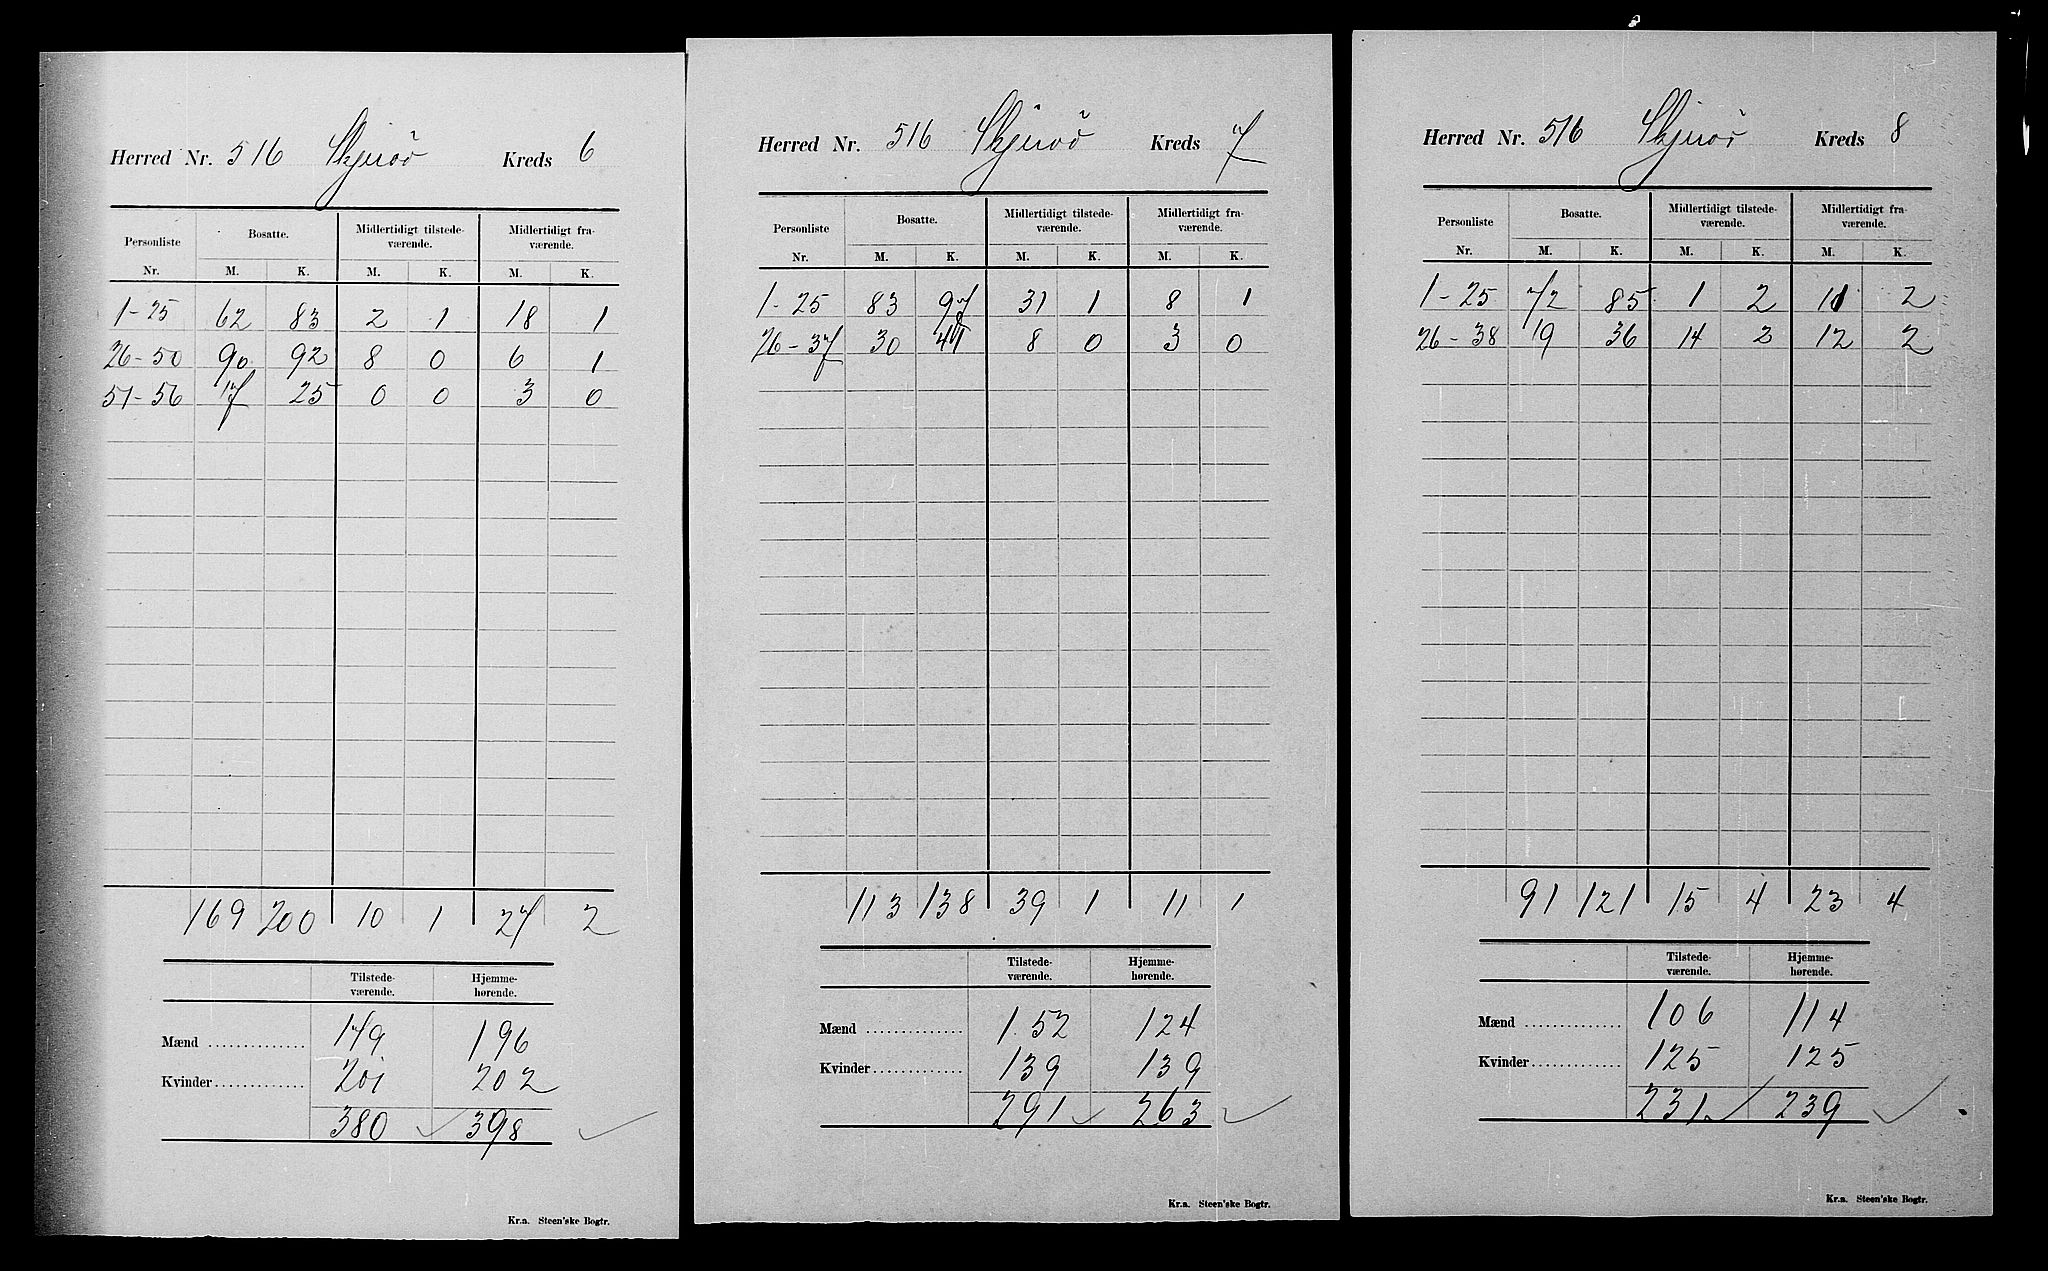 Herred Nr. 516 Skjnöö Kreds 6
Personliste Bosatte. Midlertidigt tilstede- Midlertidigt fra-
værende. værende.
Nr. M. K. M. K. M. K.
1-25 62 83 2 1 18 1
26-50 90 92 8 0 6 1
51-56 17 25 0 0 3 0
169 200 10 1 27 2
Tilstede- Hjemme-
værende. hørende.
Mænd 179 196
Kvinder 201 202
380 398
Kr.a. Steen'ske Bogtr.
Herred Nr. 516 Skjnöö Kreds 7
Personliste Bosatte. Midlertidigt tilstede- Midlertidigt fra-
værende. værende.
Nr. M. K. M. K. M. K.
1-25 83 97 31 1 8 1
26-37 30 41 8 0 3 0
113 138 39 1 11 1
Tilstede- Hjemme-
værende. hørende.
Mænd 152 124
Kvinder 139 139
291 263
Kr.a. Steen'ske Bogtr.
Herred Nr. 516 Skjnöö Kreds 8
Personliste Bosatte. Midlertidigt tilstede- Midlertidigt fra-
værende. værende.
Nr. M. K. M. K. M. K.
1-25 72 85 1 2 11 2
26-38 19 36 14 2 12 2
91 121 15 4 23 4
Tilstede- Hjemme-
værende. hørende.
Mænd 106 114
Kvinder 125 125
231 239
Kr.a. Steen'ske Bogtr.